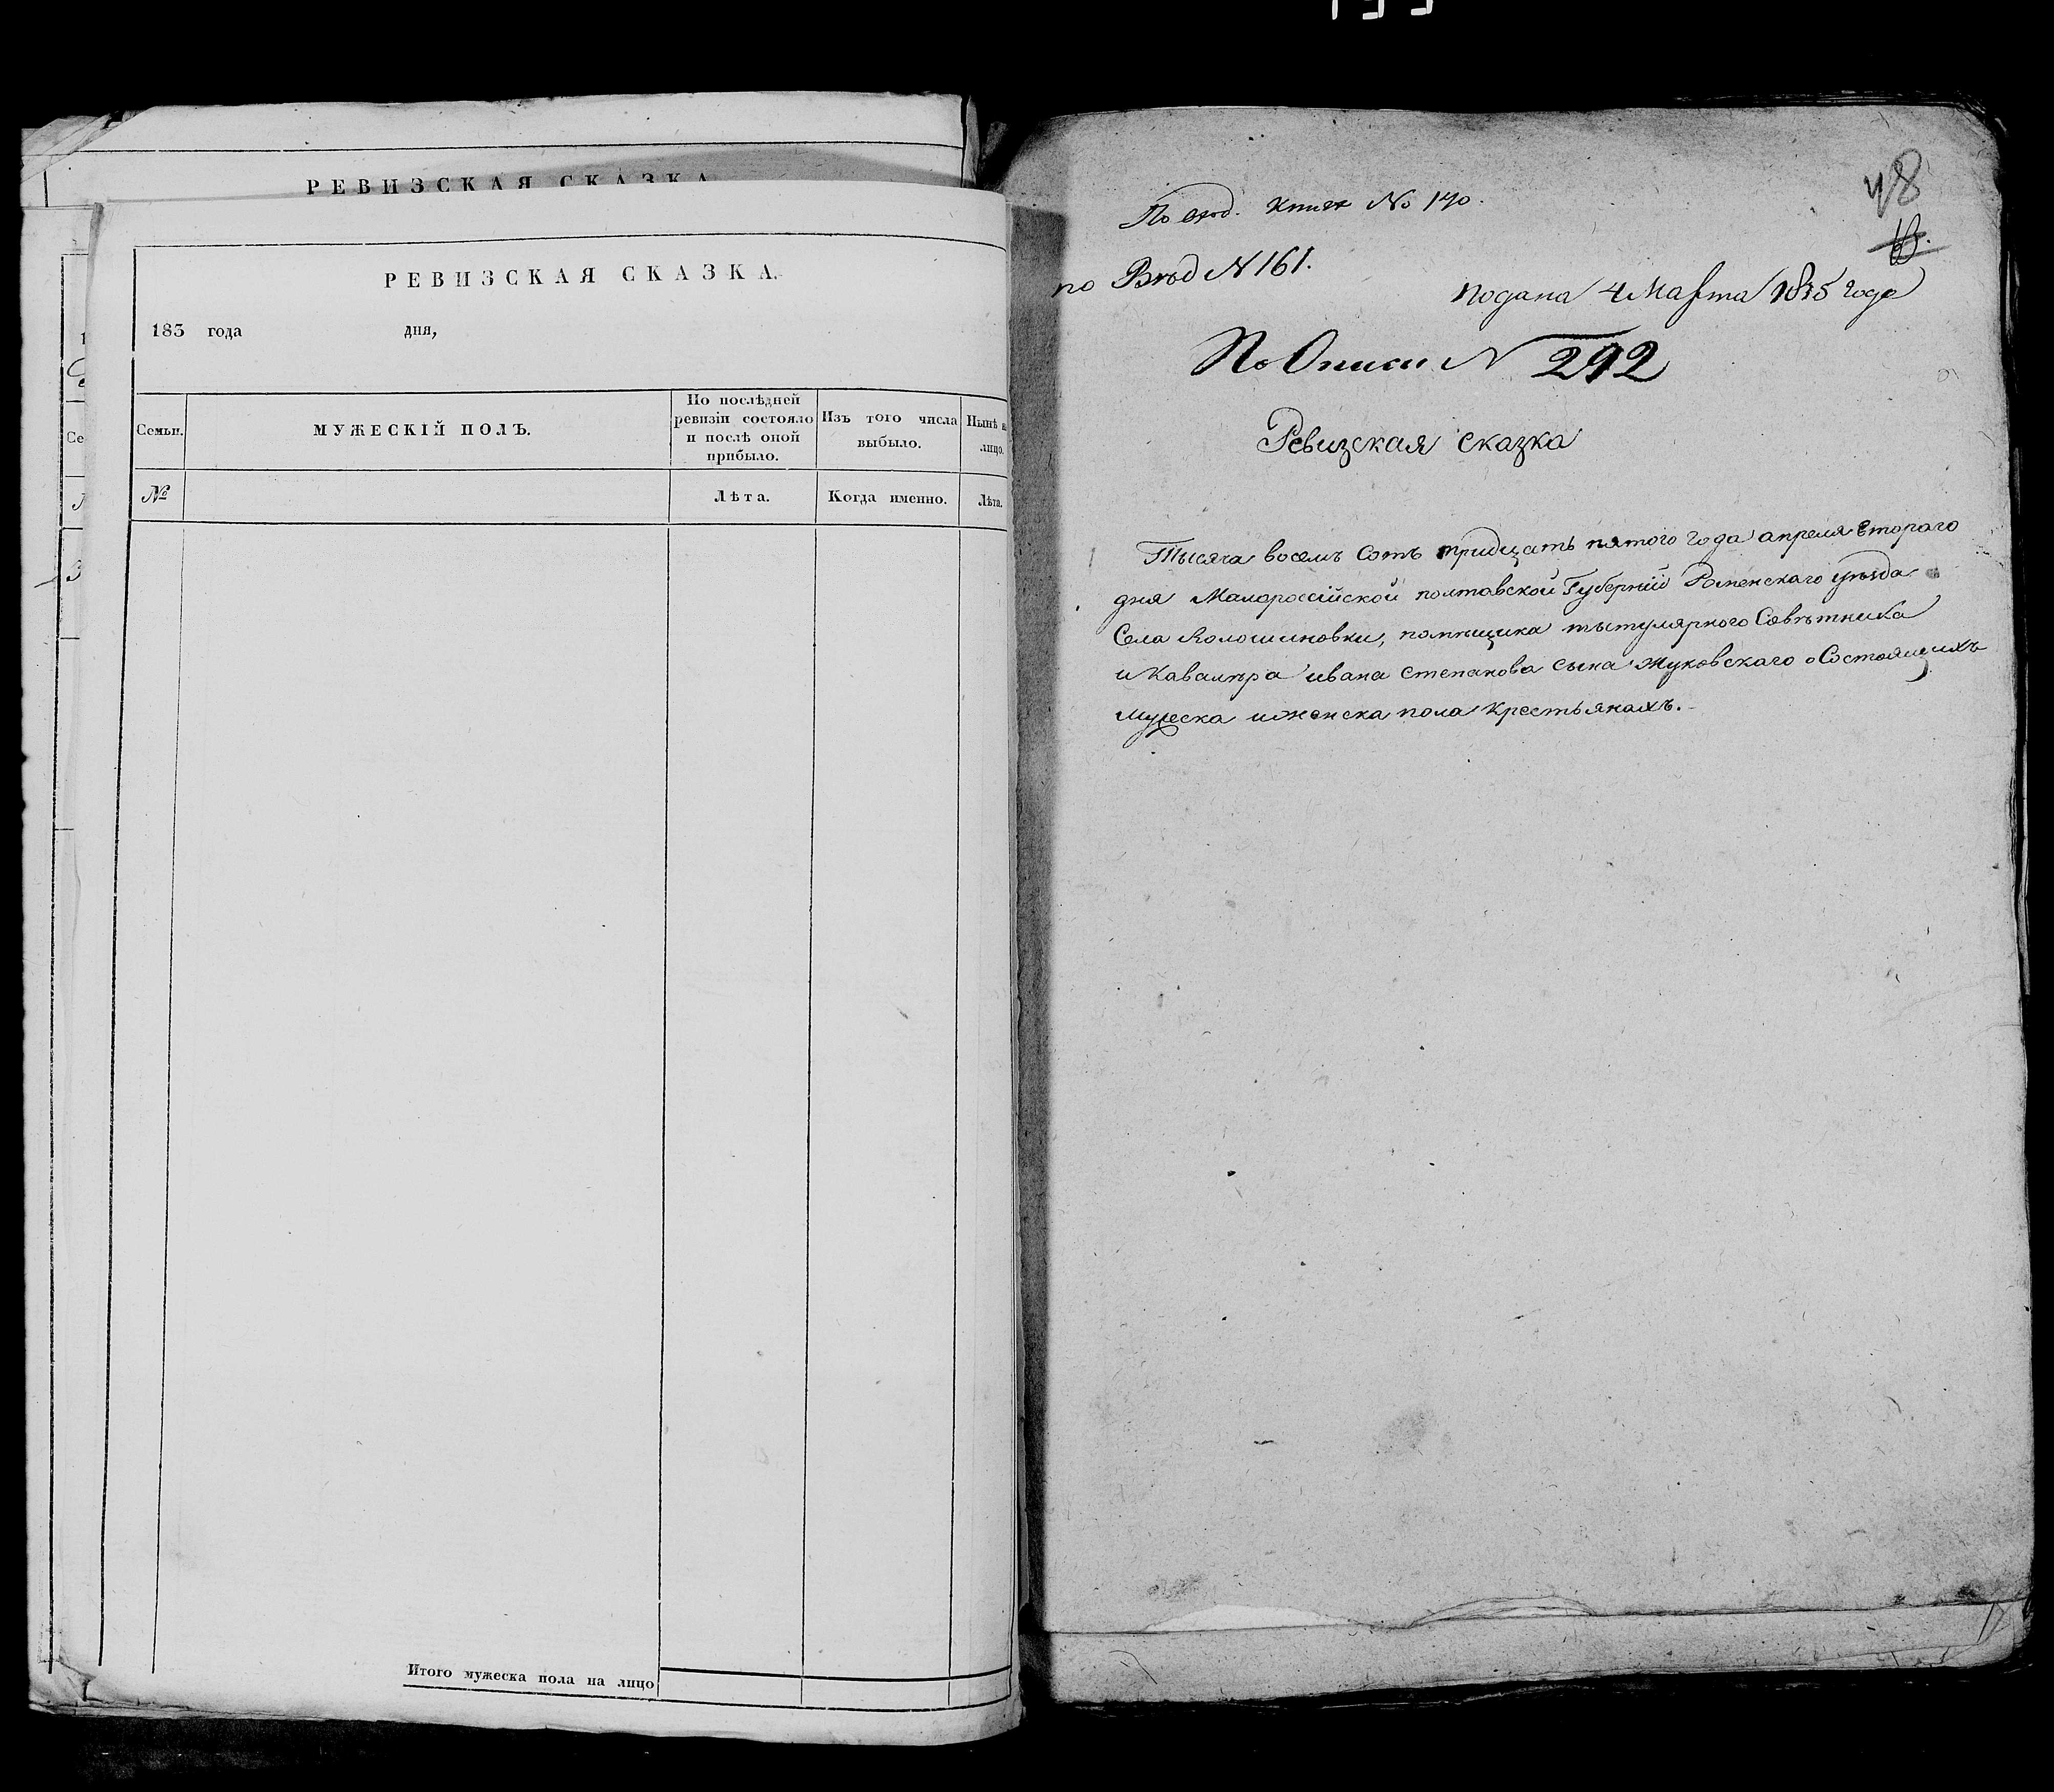 РЕВИЗСКАЯ СКАЗКА
РЕВИЗСКАЯ СКАЗКА.
183 года дня,
Семьи.
МУЖЕСКІЙ ПОЛЪ.
По послѣдней
ревизіи состояло
и послѣ оной
прибыло.
Изъ того числа
выбыло.
Нынѣ на
лицо.
№
Лѣта.
Когда именно.
Лѣта.
Итого мужеска пола на лицо
48
По вход. книге № 170.
по Вход N 161.
подана 4 Марта 1835 года
По Описи N 292
Ревизская сказка
Тысяча восемъ сотъ тридцать пятого года апреля второго
дня Малороссійской полтавской Губерніи Роменскаго уѣзда
Села Колошиновки, помѣщика тытулярного Совѣтника
и Кавалѣра ивана степанова сына Жуковскаго о Состоящихъ
мужеска иженска пола крестьянахъ.